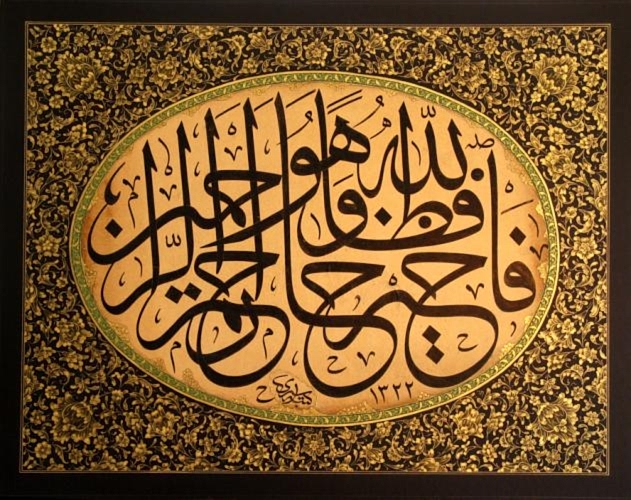 فَاللّٰهُ خَيْرٌ حَافِظًا وَهُوَ أَرْحَمُ الرَّاحِمِينَ
١٣٢٢